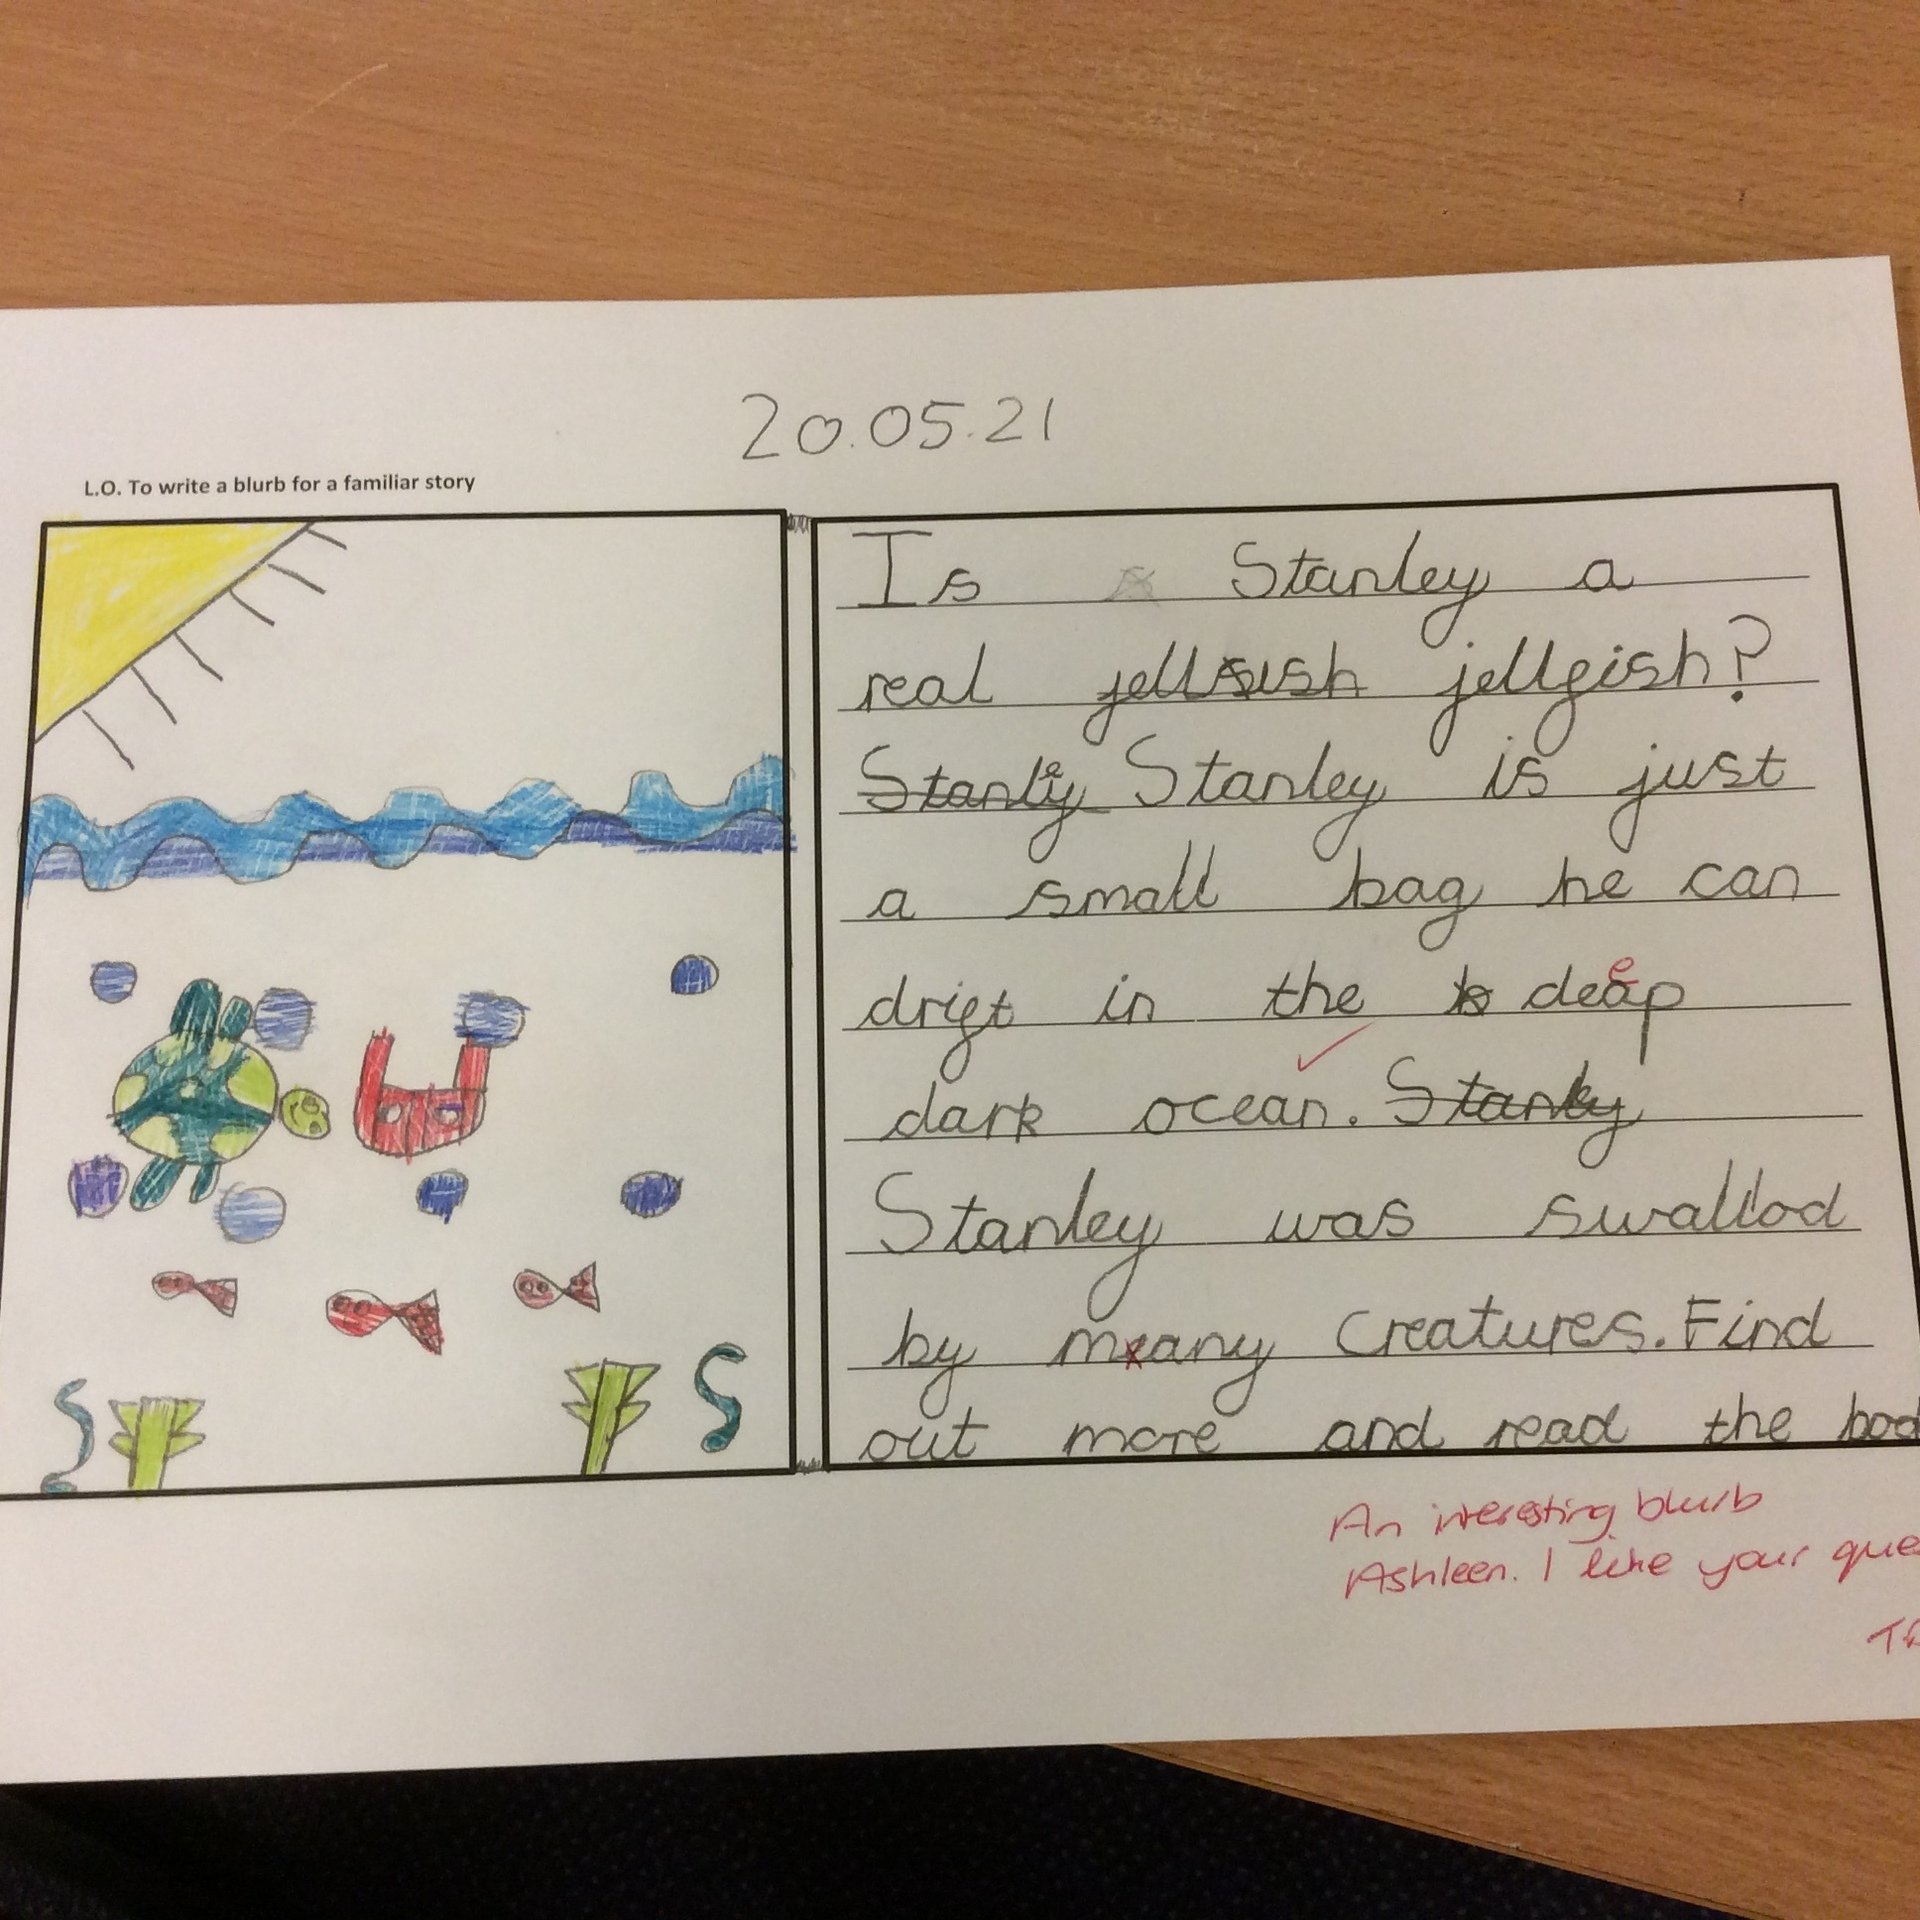 20.05.21
L.O. To write a blurb for a familiar story
Is Stanley a
real jellsish jellfish?
Stanley Stanley is just
a small bag he can
drift in the deeap
dark ocean. Stanley
Stanley was swallod
by many creatures. Find
out more and read the
An interesting blurb
Ashleen. I like your